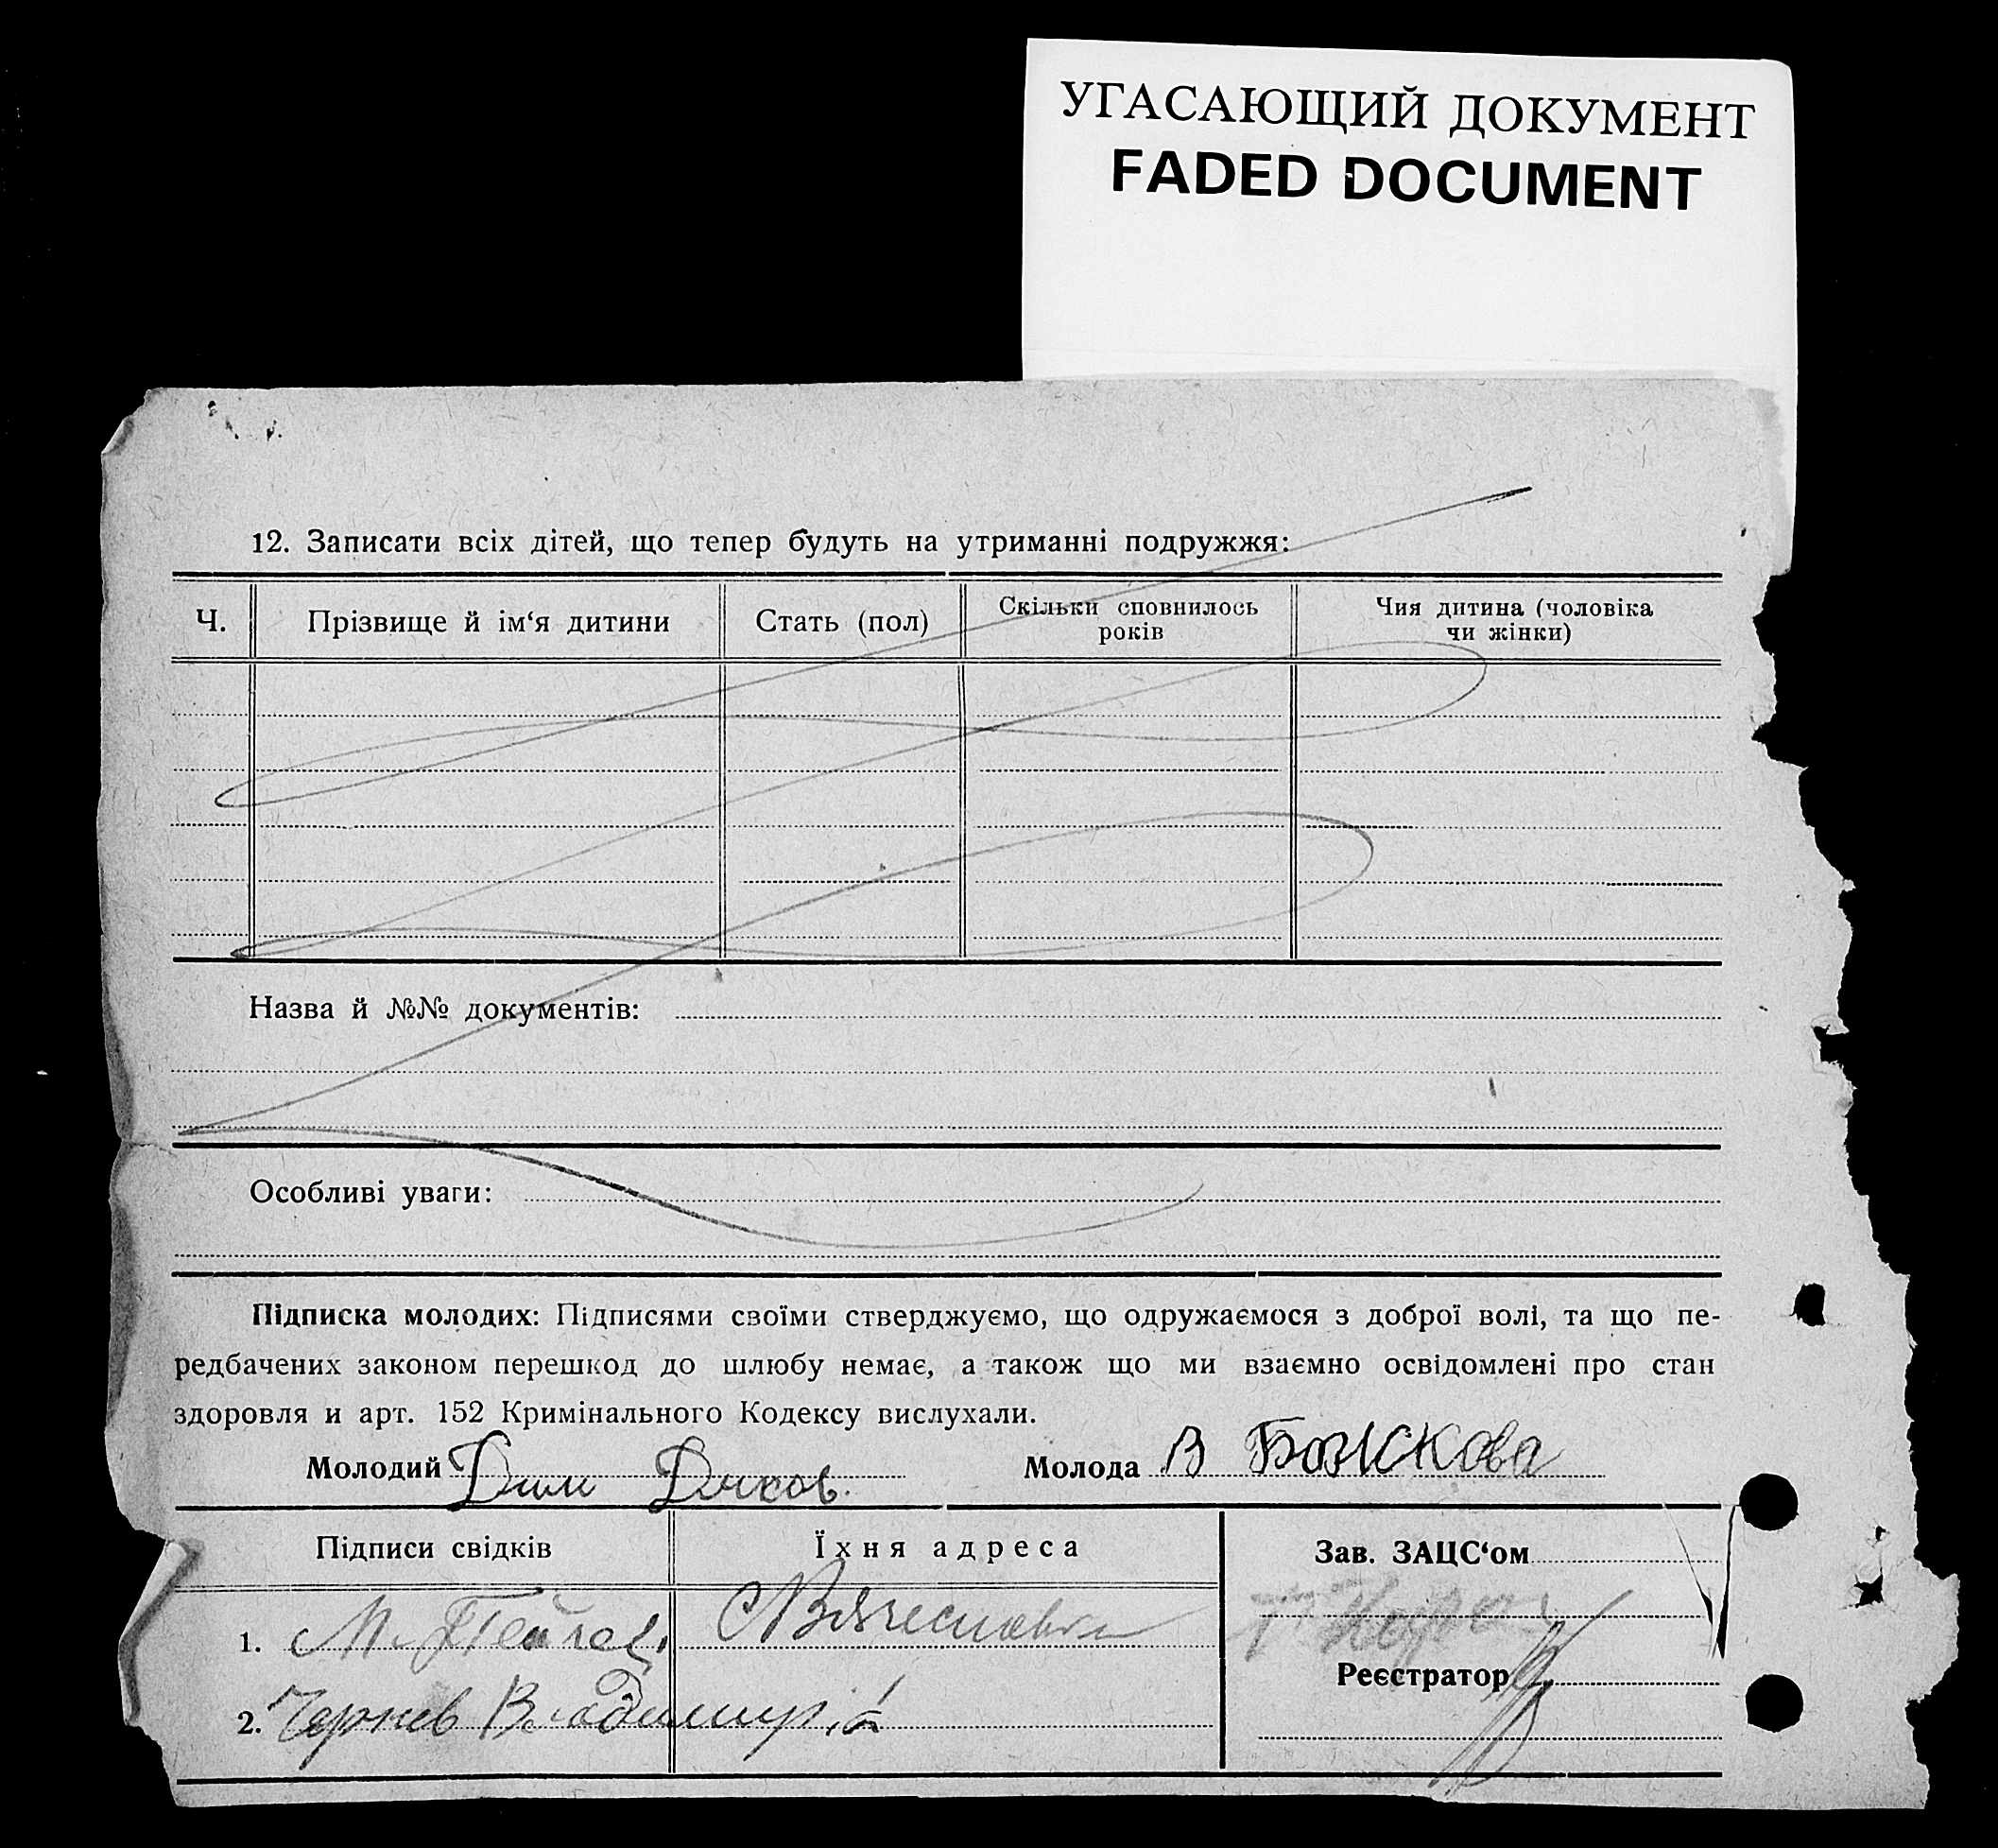 УГАСАЮЩИЙ ДОКУМЕНТ
FADED DOCUMENT
12. Записати всіх дітей, що тепер будуть на утриманні подружжя:
Ч. Прізвище й ім‘я дитини Стать (пол) Скільки сповнилось років Чия дитина (чоловіка чи жінки)
Назва й №№ документів:
Особливі уваги:
Підписка молодих: Підписями своїми стверджуємо, що одружаємося з доброї волі, та що пе-
редбачених законом перешкод до шлюбу немає, а також що ми взаємно освідомлені про стан
здоровля и арт. 152 Кримінального Кодексу вислухали.
Молодий Дим Молода В Божскова
Підписи свідків Їхня адреса Зав. ЗАЦС‘ом
1. М.
Реєстратор
2. Чернев Владимир